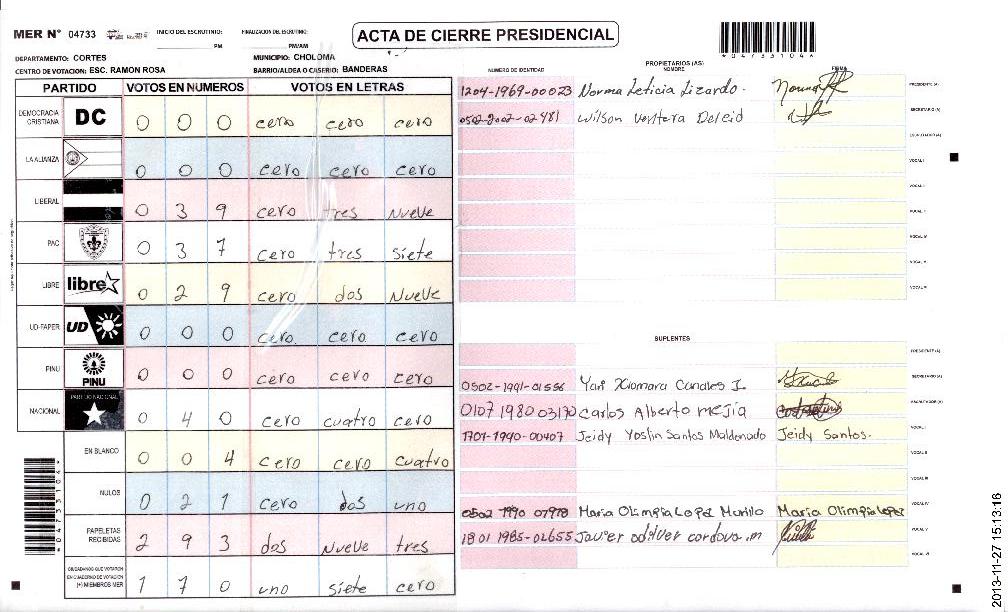 MER N° 04733 INICIO DEL ESCRUTINIO: FINALIZACION DEL ESCRUTINIO: ACTA DE CIERRE PRESIDENCIAL
PM PM/AM
*04733104*
DEPARTAMENTO: CORTES MUNICIPIO: CHOLOMA
CENTRO DE VOTACION: ESC. RAMON ROSA BARRIO/ALDEA O CASERIO: BANDERAS
PARTIDO VOTOS EN NUMEROS VOTOS EN LETRAS
DEMOCRACIA CRISTIANA DC 0 0 0 cero cero cero
LA ALIANZA 0 0 0 cero cero cero
LIBERAL 0 3 9 cero tres Nueve
PAC 0 3 7 cero tres siete
LIBRE libre 0 2 9 cero dos Nueve
UD-FAPER UD 0 0 0 cero cero cero
PINU PINU 0 0 0 cero cero cero
NACIONAL PARTIDO NACIONAL 0 4 0 cero cuatro cero
EN BLANCO 0 0 4 cero cero cuatro
NULOS 0 2 1 cero dos uno
PAPELETAS RECIBIDAS 2 9 3 dos Nueve tres
CIUDADANOS QUE VOTARON EN CUADERNO DE VOTACION (+) MIEMBROS MER 1 7 0 uno siete cero
*04733104*
PROPIETARIOS (AS)
NUMERO DE IDENTIDAD NOMBRE FIRMA
1204-1969-00023 Norma Leticia Lizardo. PRESIDENTE (A)
0502-2002-02481 Wilson Ventera Deleid SECRETARIO (A)
ESCRUTADOR (A)
VOCAL I
VOCAL II
VOCAL III
VOCAL IV
VOCAL V
VOCAL VI
SUPLENTES
PRESIDENTE (A)
0502-1991-01556 Yari Xiomara Canales I. SECRETARIO (A)
0107 1980 03170 Carlos Alberto mejía ESCRUTADOR (A)
1701-1940-00407 Jeidy Yoslin Santos Maldonado Jeidy Santos. VOCAL I
VOCAL II
VOCAL III
0502 1990 07978 Maria Olimpia Lopez Murillo Maria Olimpia Lopez VOCAL IV
1801 1985-02655 Javier odilver cordova.m VOCAL V
VOCAL VI
2013-11-27 15:13:16